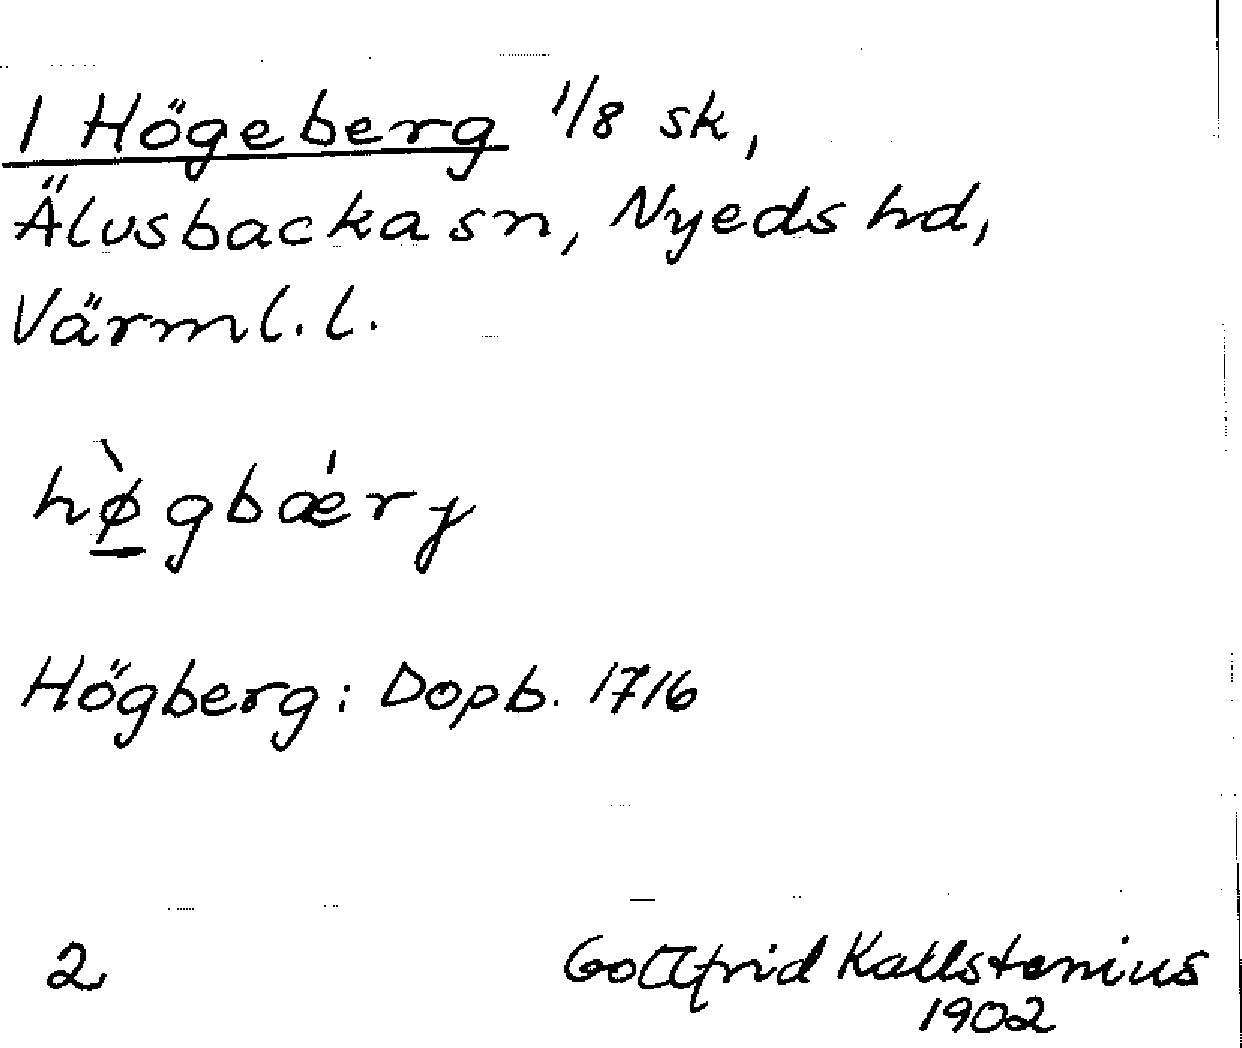 1 Högeberg 1/8 sk,
Älvsbacka sn, Nyeds hd,
Värml. l.
hø̲̀gbǽrj
Högberg: Dopb. 1716
2
Gottfrid Kallstenius
1902